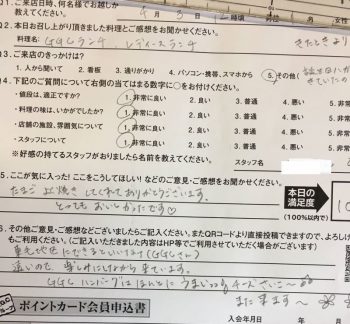 Q1. ご来店日時、何名様でお越しか教えてください。
Q2. 本日お召し上がり頂きました料理とご感想をお聞かせください。
料理名: GGCランチ レディースランチ
Q3. ご来店のきっかけは?
1. 人から聞いて 2. 看板 3. 通りがかり 4. パソコン・携帯、スマホから 5. その他(
Q4. 下記のご質問について右側の当てはまる数字に○をお付けください。
・値段は、適正ですか? 1. 非常に良い 2. 良い 3. 普通 4. 悪い 5. 非常
・料理の味は、いかがでしたか? 1. 非常に良い 2. 良い 3. 普通 4. 悪い 5. 非常
・店舗の施設、雰囲気について 1. 非常に良い 2. 良い 3. 普通 4. 悪い 5. 非常
・スタッフについて 1. 非常に良い 2. 良い 3. 普通 4. 悪い 5. 非常
※好感の持てるスタッフがおりましたら名前を教えてください。 スタッフ名
5. ここが気に入った! ここをこうしてほしい! などのご意見・ご感想をお聞かせください。
たまご 焼きしてくれてありがとうございます。
とってもおいしかったです♡
本日の満足度
(100%以内で)
10
6. その他ご意見・ご感想などございましたらご記入ください。またQRコードより直接投稿できますので、よろしけ
もご利用ください。(ご記入いただきました内容はHP等でご利用させていただく場合がございます)
地にできるといいな(GGCさん)
遠いので、楽しみにしながら来ています。
GGCハンバーグはほんとに うまい チーズさいこ〜
また来ます〜
GGCグループ
ポイントカード会員申込書
入会年月日 年 月